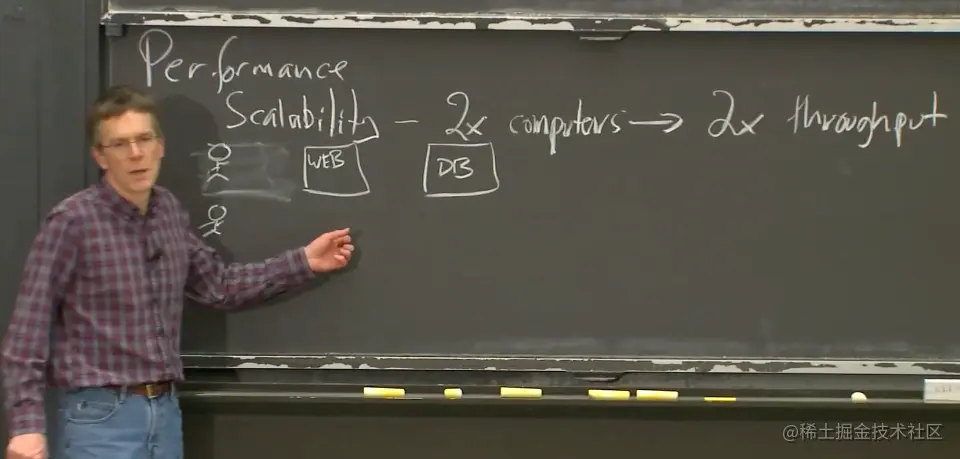 Performance
Scalability – 2x computers → 2x throughput
WEB DB
@稀土掘金技术社区